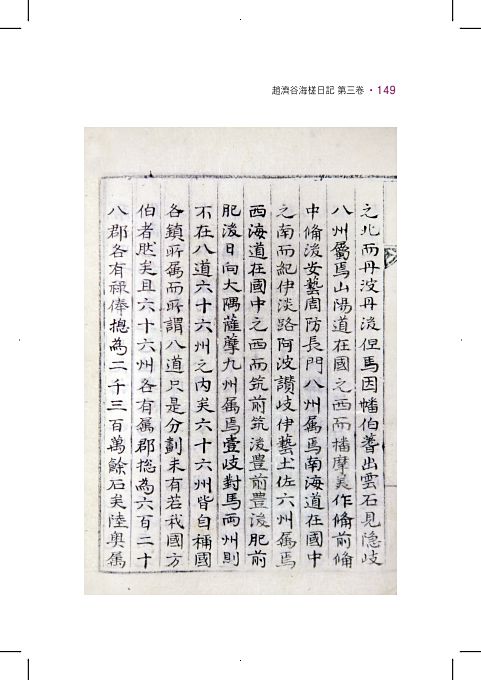 趙濟谷海槎日記 第三卷 · 149
之北而丹波丹後但馬因幡伯蓍出雲石見隐岐
八州屬焉山陽道在國之西而播摩美作俻前俻
中俻後安藝周防長門八州属焉南海道在國中
之南而紀伊淡路阿波讃岐伊藝土佐六州属焉
西海道在國中之西而筑前筑後豊前豊後肥前
肥後日向大隅薩摩九州属焉壹歧對馬両州則
不在八道六十六州之内矣六十六州皆自稱國
各鎮所属而所謂八道只是分劃未有若我國方
伯者然矣且六十六州各有属郡揔為六百二十
八郡各有祿俸揔為二千三百萬餘石矣陸奥属